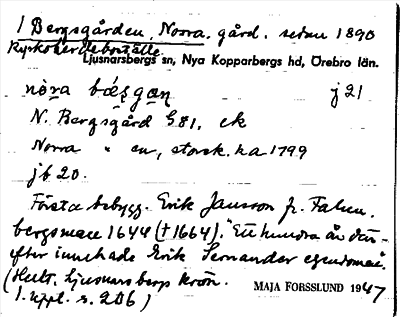 1 Bergsgården, Norra. gård. sedan 1890
kyrkoherdeboställe
Ljusnarsbergs sn, Nya Kopparbergs hd, Örebro län.
nòra bǽsgaṇ j 21
N. Bergsgård G 81, ek
Norra " en, storsk. ka 1799
jb 20.
Första bebygg. Erik Jansson fr. Falun.
bergsman 1644 (†1664). "Ett hundra år där-
efter innehade Erik Sernander egendomen."
(Hult. Ljusnarsbergs krön.
1. uppl. s. 206)
MAJA FORSSLUND 1947